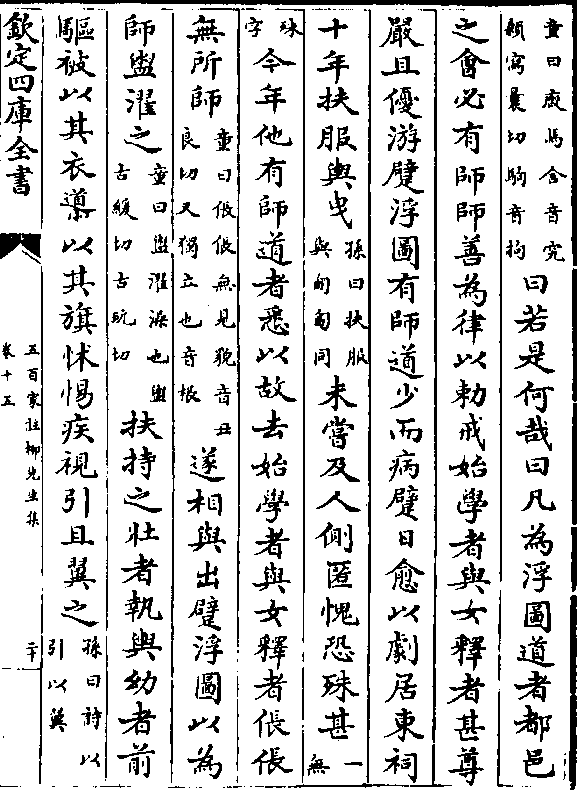 童曰廄馬舍音究
顙寫曩切駒音拘
曰若是何哉曰凡為浮圖道者都邑
之會必有師師善為律以勅戒始學者與女釋者甚尊
嚴且優游躄浮圖有師道少而病躄日愈以劇居東祠
十年扶服與曳
孫曰扶服
與匍匐同
未嘗及人側匿愧恐殊甚
一
無
殊
字
今年他有師道者悉以故去始學者與女釋者倀倀
無所師
童曰倀倀無見貌音丑
良切又獨立也音根
遂相與出躄浮圖以為
師盥濯之
童曰盥濯澡也盥
古緩切古玩切
扶持之壯者執與幼者前
驅被以其衣導以其旗怵惕疾視引且翼之
孫曰詩以
引以翼
欽定四庫全書
五百家註柳先生集
卷十五
二十